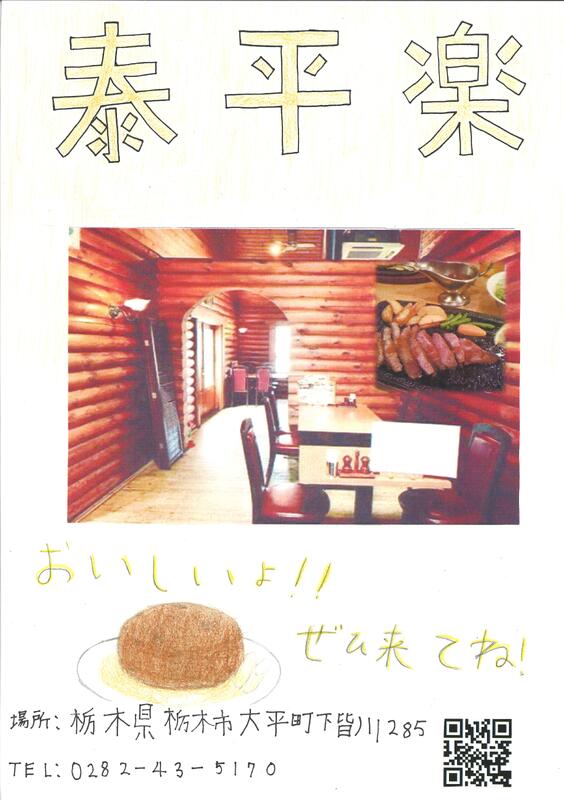 泰平楽
おいしいよ!!
ぜひ来てね!
場所:栃木県栃木市大平町下皆川285
TEL:0282-43-5170